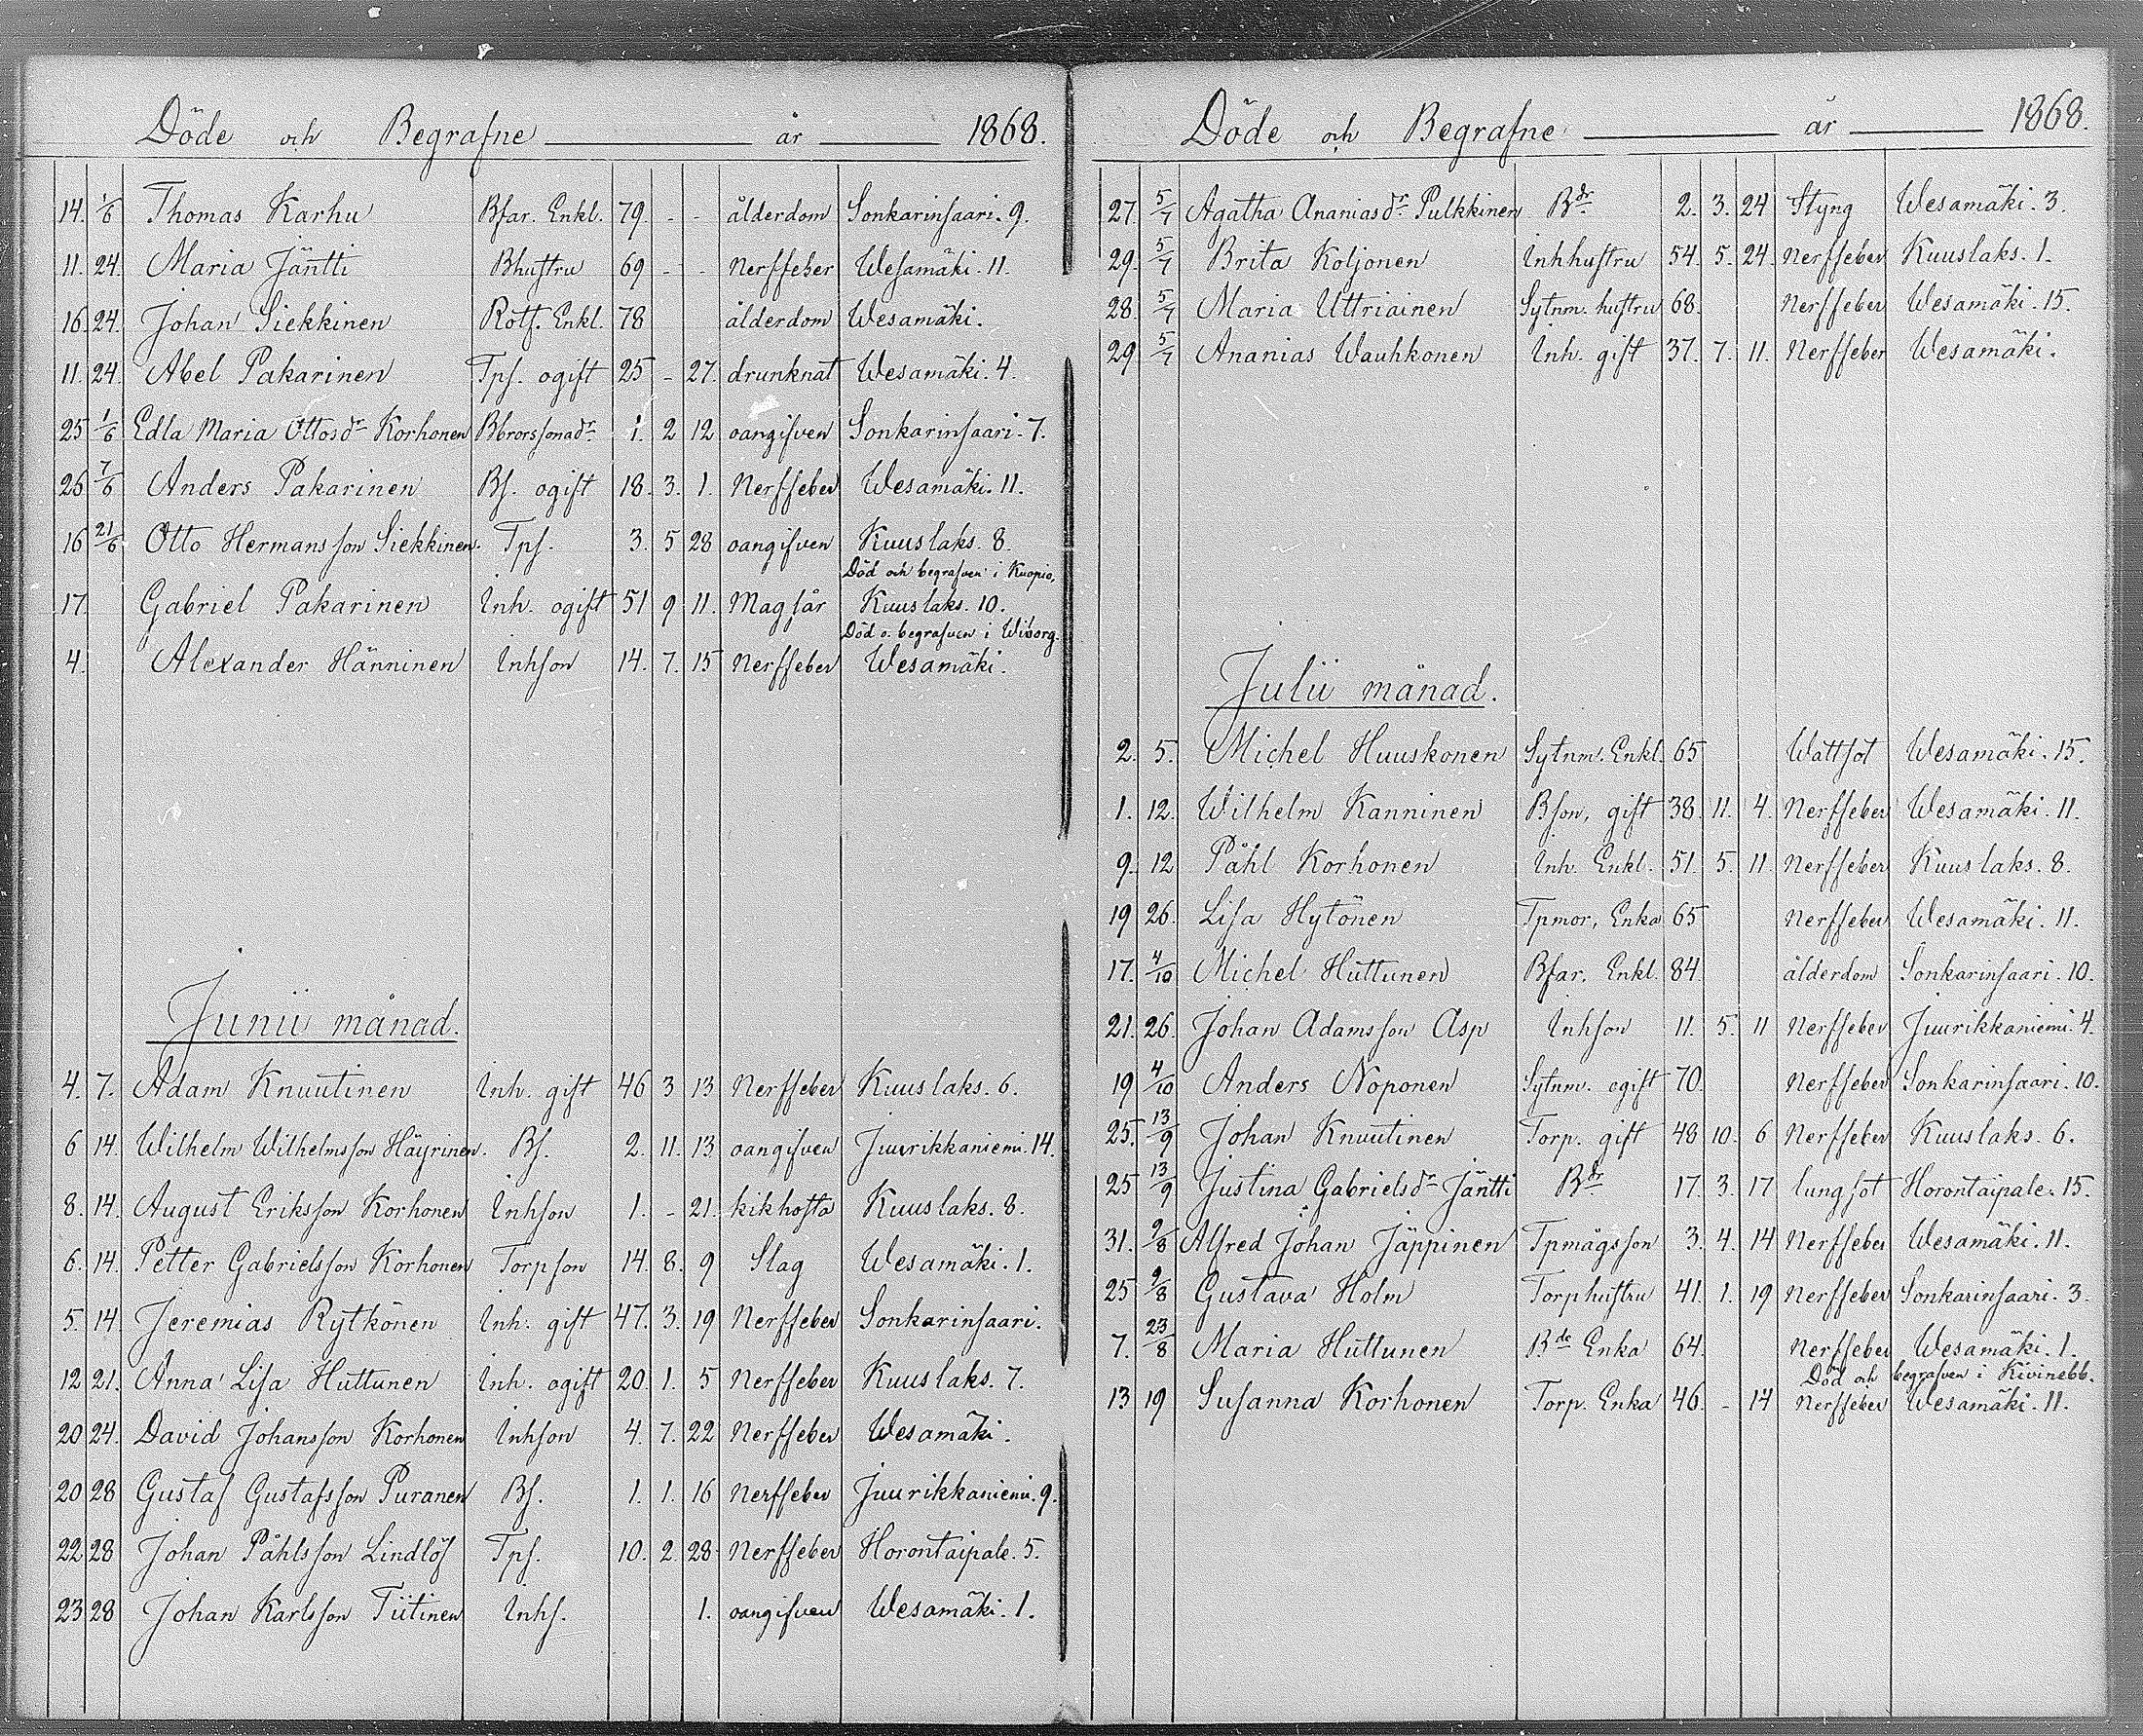 Döde och Begrafne år 1868.
14. 1/6 Thomas Karhu Bfar. Enkl. 79. - - ålderdom Sonkarinsaari. 9.
11. 24. Maria Jäntti Bhustru 69 - - Nerffeber Wesamäki. 11.
16. 24. Johan Siekkinen Rotf. Enkl. 78 ålderdom Wesamäki.
11. 24. Abel Pakarinen Tps. ogift 25 - 27. drunknat Wesamäki. 4.
25 1/6 Edla Maria Ottosdr Korhonen Bbrorssonadr 1. 2 12 oangifven Sonkarinsaari. 7.
26 7/6 Anders Pakarinen Bs. ogift 18. 3. 1. Nerffeber Wesamäki. 11.
16 21/6 Otto Hermansson Siekkinen. Tps. 3. 5 28 oangifven Kuuslaks. 8.
Död och begrafven i Kuopio,
17. Gabriel Pakarinen Inh. ogift 51 9 11. Magsår Kuuslaks. 10.
Död o. begrafven i Wiborg.
4. Alexander Hänninen Inhson 14. 7. 15 Nerffeber Wesamäki.
Junii månad.
4. 7. Adam Knuutinen Inh. gift 46 3 13 Nerffeber Kuuslaks. 6.
6 14. Wilhelm Wilhelmsson Häyrinen. Bs. 2. 11. 13 oangifven Juurikkaniemi. 14.
8. 14. August Eriksson Korhonen Inhson 1. - 21. kikhosta Kuuslaks. 8.
6. 14. Petter Gabrielsson Korhonen Torpson 14. 8. 9 Slag Wesamäki. 1.
5. 14. Jeremias Rytkönen Inh. gift 47. 3. 19 Nerffeber Sonkarinsaari.
12 21. Anna Lisa Huttunen Inh. ogift 20. 1. 5 Nerffeber Kuuslaks. 7.
20 24. David Johansson Korhonen Inhson 4. 7. 22 Nerffeber Wesamäki.
20 28 Gustaf Gustafsson Puranen Bs. 1. 1. 16 Nerffeber Juurikkaniemi. 9.
22 28 Johan Påhlsson Lindlöf Tps. 10. 2. 28 Nerffeber Horontaipale. 5.
23 28 Johan Karlsson Tiitinen Inhs. 1. oangifven Wesamäki. 1.
Döde och Begrafne år 1868.
27. 5/7 Agatha Ananiasdr Pulkkinen Bdr 2. 3. 24 Styng Wesamäki. 3.
29. 5/7 Brita Koljonen Inhhustru 54. 5. 24. Nerffeber Kuuslaks. 1.
28. 5/7 Maria Uttriainen Sytnm. hustru 68. Nerffeber Wesamäki. 15.
29 5/7 Ananias Wauhkonen Inh. gift 37. 7. 11. Nerffeber Wesamäki.
Julii månad.
2. 5. Michel Huuskonen Sytnm. Enkl. 65 Wattsot Wesamäki. 15.
1. 12. Wilhelm Kanninen Bson, gift 38. 11. 4. Nerffeber Wesamäki. 11.
9. 12 Påhl Korhonen Inh. Enkl. 51. 5. 11. Nerffeber Kuuslaks. 8.
19 26. Lisa Hytönen Tpmor, Enka 65 Nerffeber Wesamäki. 11.
17. 4/10 Michel Huttunen Bfar. Enkl. 84. ålderdom Sonkarinsaari. 10.
21. 26. Johan Adamsson Asp Inhson 11. 5. 11 Nerffeber Juurikkaniemi. 4.
19 4/10 Anders Noponen Sytnm. ogift 70. Nerffeber Sonkarinsaari. 10.
25. 13/9 Johan Knuutinen Torp. gift 48 10. 6 Nerffeber Kuuslaks. 6.
25 13/9 Justina Gabrielsdr Jäntti Bdr 17. 3. 17 lungsot Horontaipale. 15.
31. 9/8 Alfred Johan Jäppinen Tpmågsson 3. 4. 14 Nerffeber Wesamäki. 11.
25 9/8 Gustava Holm Torphustru 41. 1. 19 Nerffeber Sonkarinsaari. 3.
7. 23/8 Maria Huttunen Bde Enka 64. Nerffeber Wesamäki. 1.
Död och begrafven i Kivinebb.
13 19 Susanna Korhonen Torp. Enka 46. - 14 Nerffeber Wesamäki. 11.